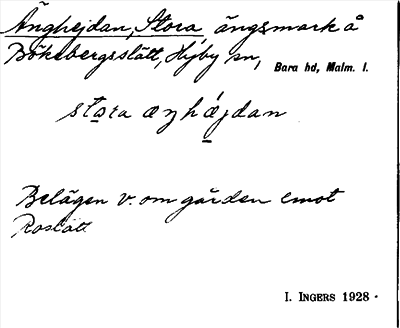 Änghejdan, Stora ängsmark å
Bökebergsslätt, Hyby sn, Bara hd, Malm. l.
stora æŋhǽjdan
Belägen v. om gården emot
Roslätt
I. INGERS 1928.